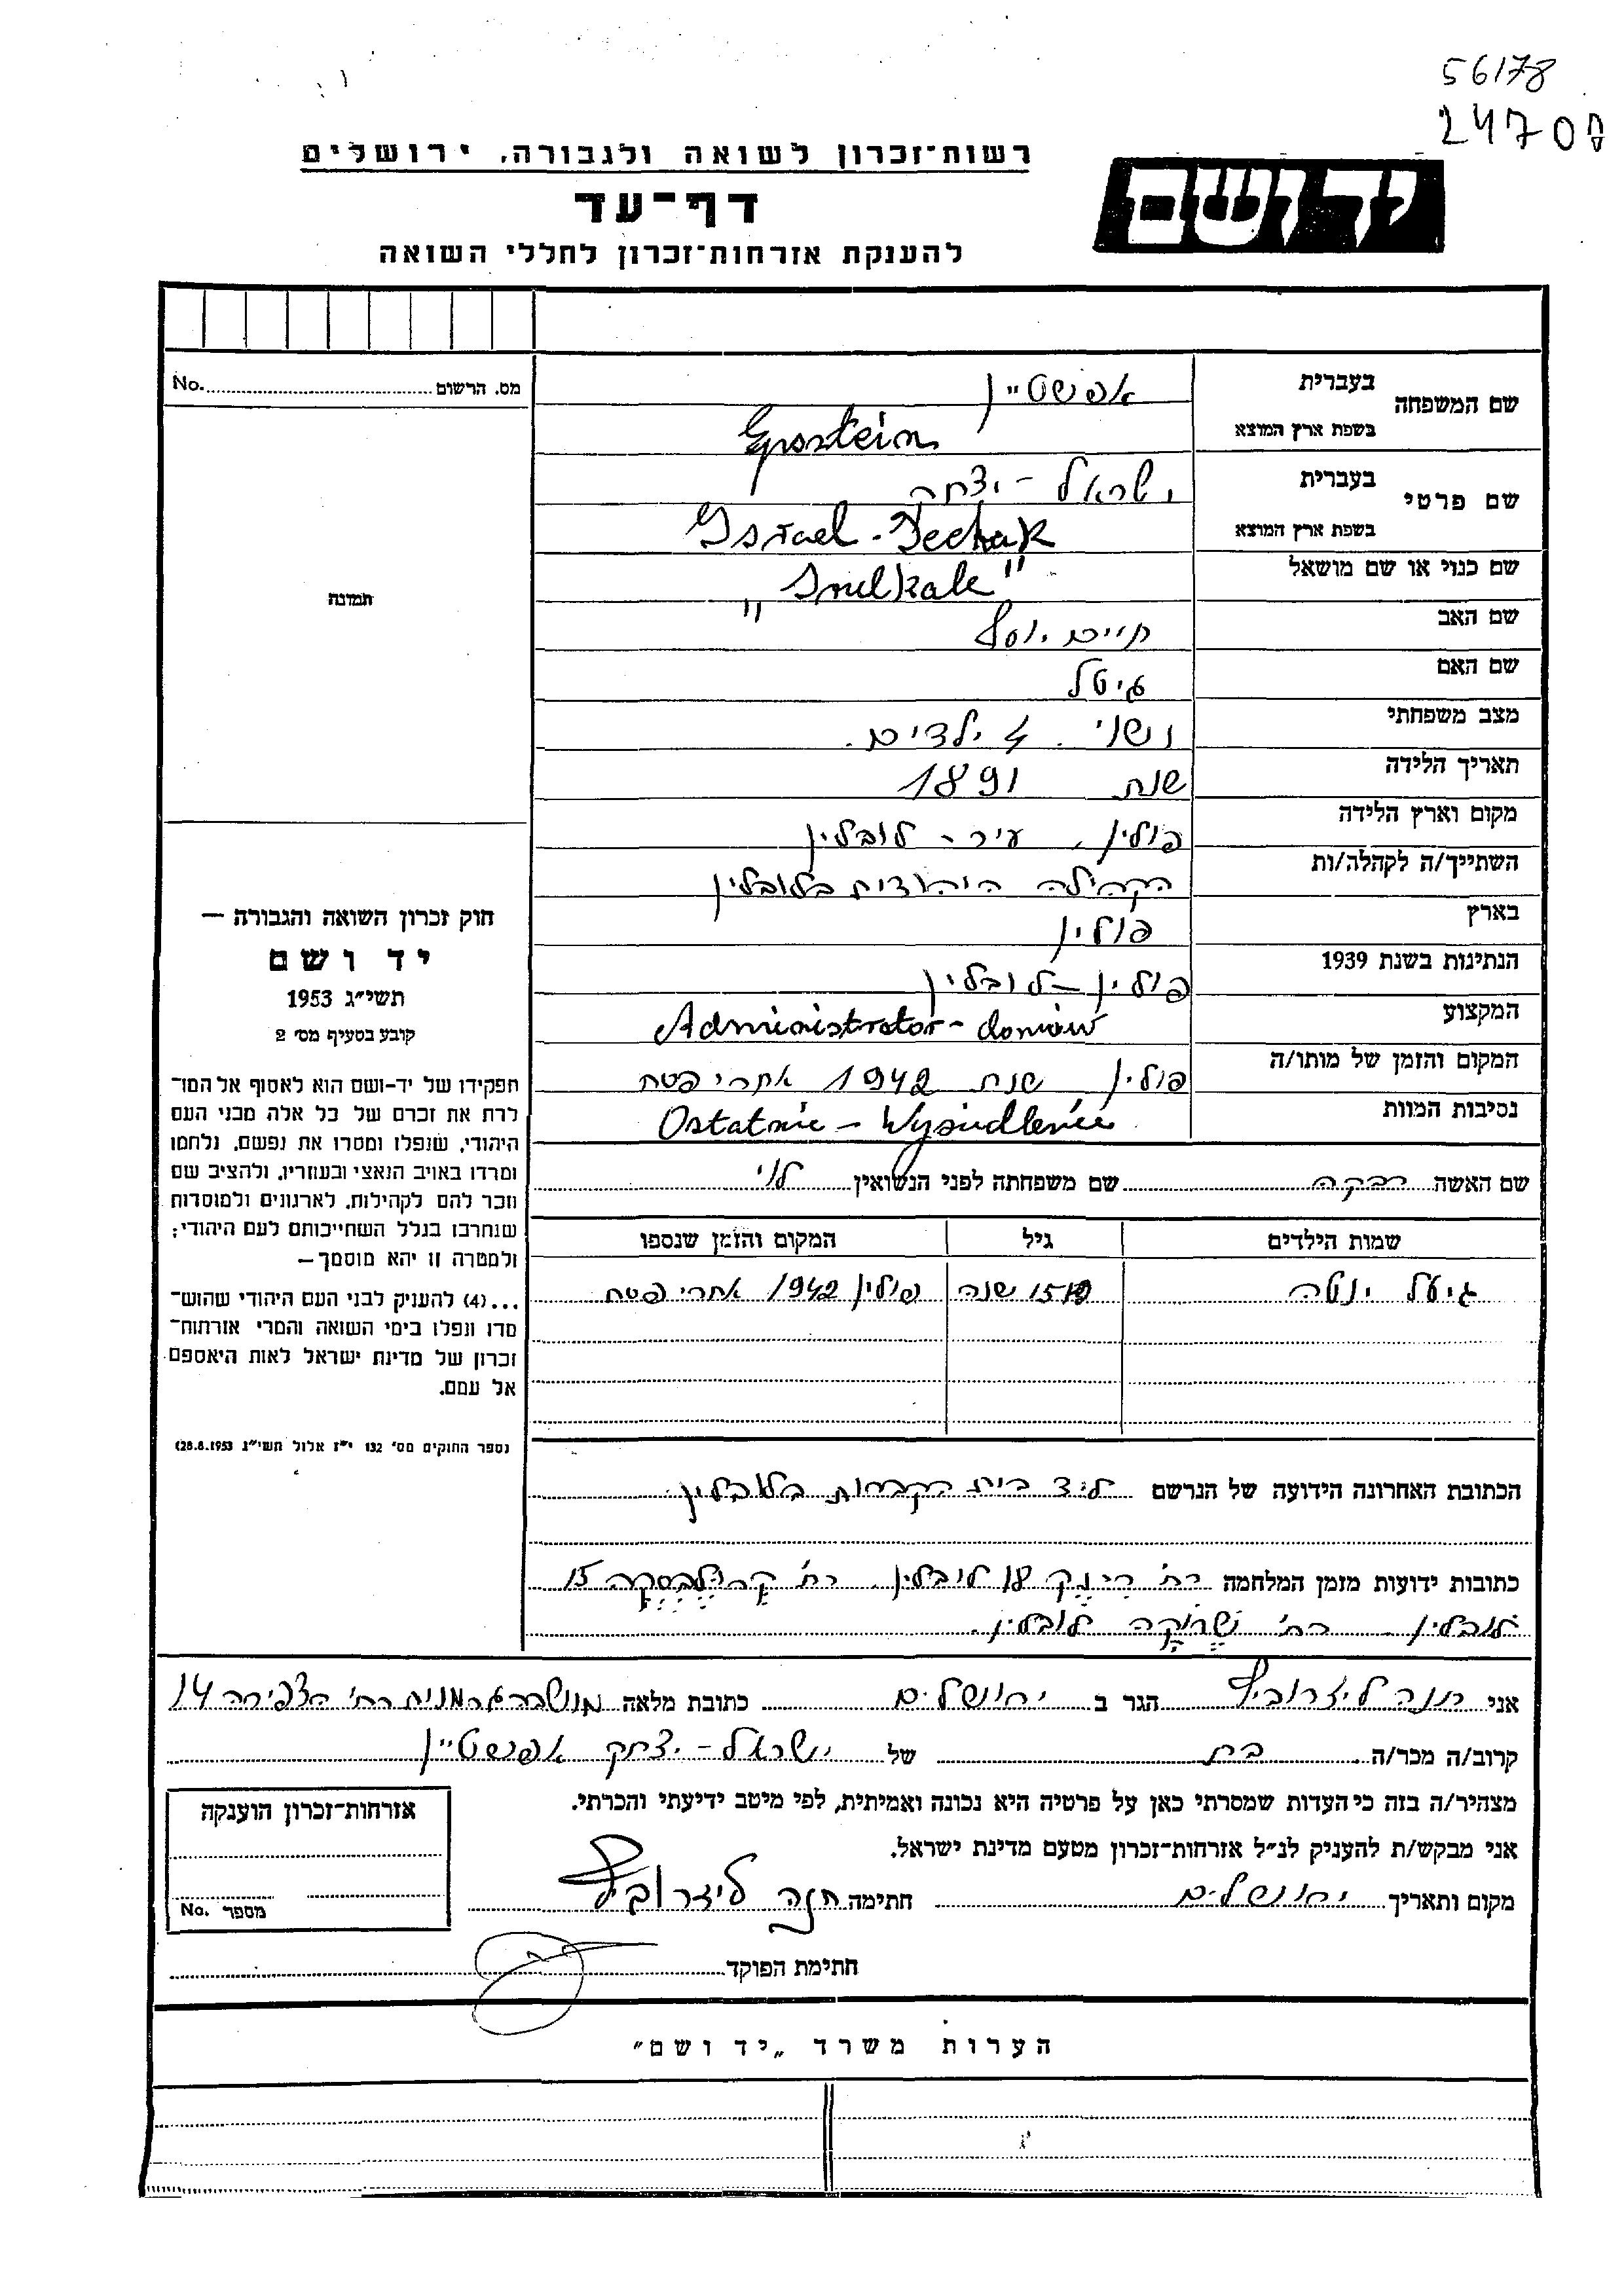 56178
24700
רשות־זכרון לשואה ולגבורה, ירושלים
דף־עד
להענקת אזרחות־זכרון לחללי השואה
יד ושם
מס. הרשום No.
תמונה
שם המשפחה בעברית אפשטיין
בשפת ארץ המוצא Epsztein
שם פרטי בעברית ישראל - יצחק
בשפת ארץ המוצא Israel - Icchak
שם כנוי או שם מושאל „Srulkale"
שם האב חיים יוסף
שם האם גיטל
מצב משפחתי נשוי. 4 ילדים.
תאריך הלידה שנת 1891
מקום וארץ הלידה פולין, עיר - לובלין
השתייך/ה לקהלה/ות הקהילה היהודית בלובלין
בארץ פולין
הנתינות בשנת 1939 פולין - לובלין
המקצוע Administrator - domów
המקום והזמן של מותו/ה פולין שנת 1942 אחרי פסח
נסיבות המוות Ostatnie - Wysiudlenie
שם האשה רבקה שם משפחתה לפני הנשואין לוי
שמות הילדים גיל המקום והזמן שנספו
יוטה שנה פולין 1942 אחרי פסח
חוק זכרון השואה והגבורה —
יד ושם
תשי״ג 1953
קובע בסעיף מס׳ 2
תפקידו של יד-ושם הוא לאסוף אל המו־
לדת את זכרם של כל אלה מבני העם
היהודי, שנפלו ומסרו את נפשם, נלחמו
ומרדו באויב הנאצי ובעוזריו, ולהציב שם
וזכר להם לקהילות, לארגונים ולמוסדות
שנחרבו בגלל השתייכותם לעם היהודי;
ולמטרה זו יהא מוסמך—
...(4) להעניק לבני העם היהודי שהוש־
מדו ונפלו בימי השואה והמרי אזרחות־
זכרון של מדינת ישראל לאות היאספם
אל עמם.
(ספר החוקים מס׳ 132 י״ז אלול תשי״ג 28.8.1953)
הכתובת האחרונה הידועה של הנרשם ליד בית הקברות בלובלין
כתובות ידועות מזמן המלחמה רח׳ רינק 18 לובלין. רח׳ 15
לובלין - רח׳ שרוקה לובלין.
אני חנה לידרוביץ הגר ב ירושלים כתובת מלאה מושבה גרמנית רח׳ הצפירה 14
קרוב/ה מכר/ה בת של ישראל - יצחק אפשטיין
מצהיר/ה בזה כי העדות שמסרתי כאן על פרטיה היא נכונה ואמיתית, לפי מיטב ידיעתי והכרתי.
אני מבקש/ת להעניק לנ״ל אזרחות־זכרון מטעם מדינת ישראל.
מקום ותאריך ירושלים חתימה חנה לידרוביץ
חתימת הפוקד
אזרחות־זכרון הוענקה
מספר No.
הערות משרד „יד ושם"